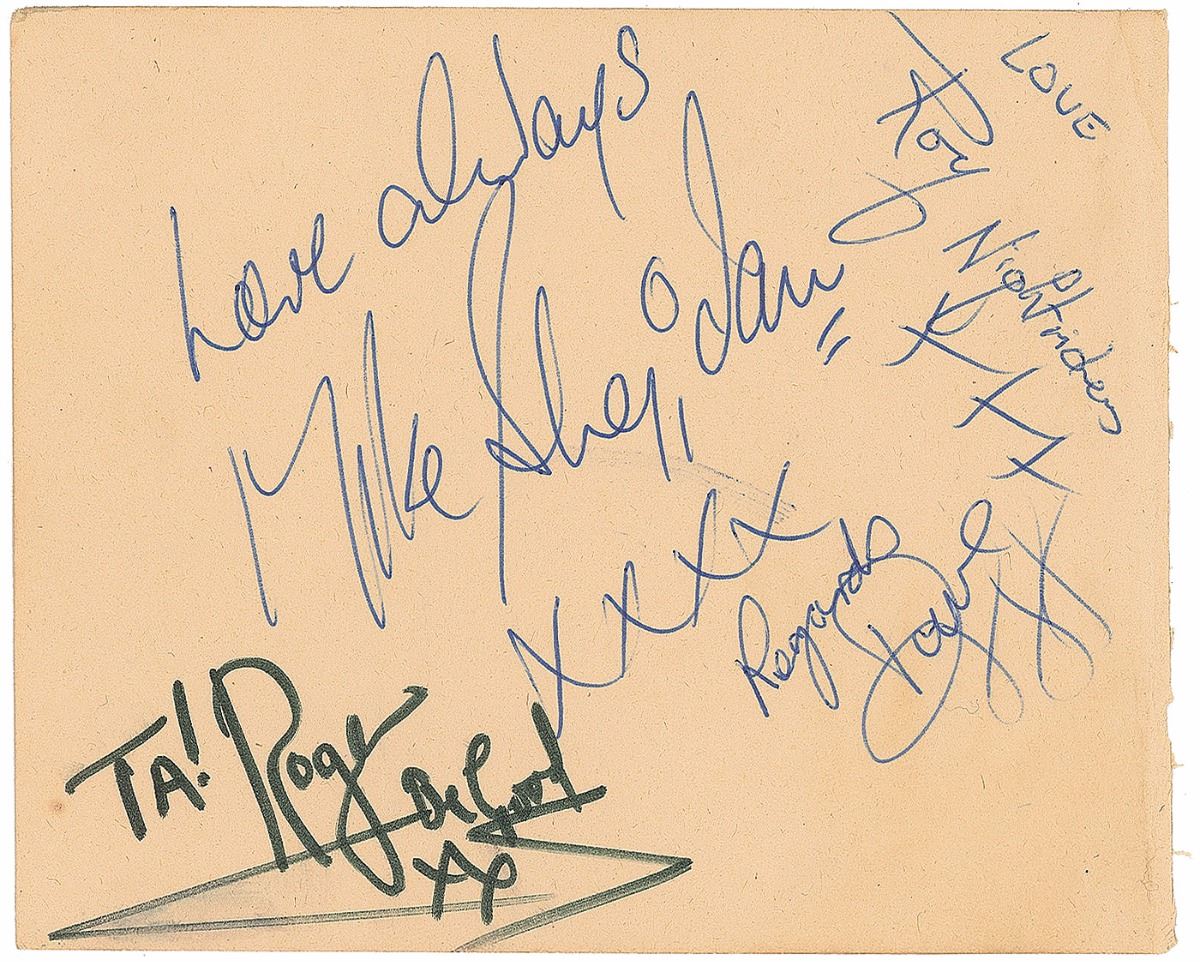 Love always
Mike Sheridan
xxxx
LOVE
Roy
Nightriders
XXX
Regards
Dave
XX
TA! Roger
Be Good
xx